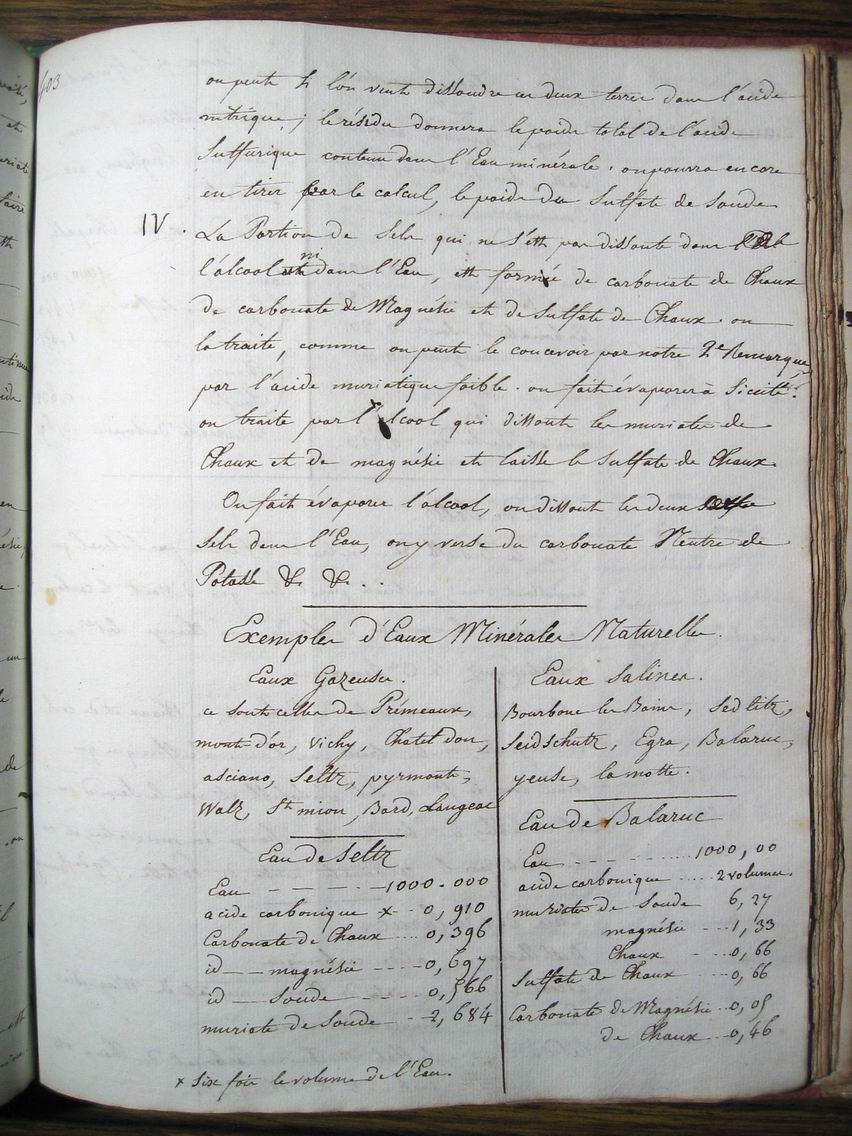 403
on peut si l'on veut dissoudre ces deux terres dans l'acide
nitrique; le résidu donnera le poids total de l'acide
Sulfurique contenu dans l'Eau minérale. on pourra encore
en tirer par le calcul, le poids du Sulfate de Soude
IV. La Portion de Sels qui ne s'est pas dissoute dans
l'alcool ni dans l'Eau, est formée de carbonate de Chaux
de carbonate de Magnésie et de Sulfate de Chaux. on
la traite, comme on peut le concevoir par notre 2e Remarque,
par l'acide muriatique foible. on fait évaporer à Siccité.
on traite par l'alcool qui dissout les muriates de
Chaux et de magnésie et laisse le Sulfate de Chaux.
On fait évaporer l'alcool, on dissout les deux
Sels dans l'Eau, on y verse du carbonate Neutre de
Potasse &c &c..
Exemples d'Eaux Minérales Naturelles.
Eaux Gazeuses.
ce sont celles de Prémeaux,
mont-d'or, Vichy, Chatel don,
asciano, Seltz, pyrmont,
Walz, St mion, Bard, Langeac
Eau de Seltz
Eau - - - - - 1000.000
acide carbonique x - - 0,910
Carbonate de Chaux .... 0,396
id - - magnésie - - - - 0,697
id - - Soude - - - - - 0,566
muriate de Soude - - 2,684
x Six fois le volume de l'Eau.
Eaux Salines.
Bourbone les Bains, Sedlitz,
Seidschutz, Egra, Balaruc,
yeuse, la motte.
Eau de Balaruc
Eau - - - - - ..... 1000,00
acide carbonique ..... 2 volumes.
muriate de Soude 6,27
magnésie - ... 1,33
Chaux - ... 0,66
Sulfate de Chaux .... 0,66
Carbonate de Magnésie .. 0,05
de Chaux ... 0,46